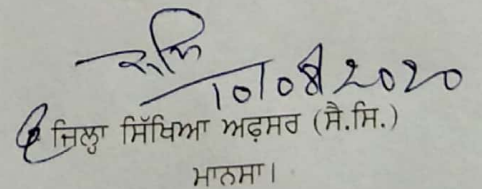 10/08/2020
ਜ਼ਿਲ੍ਹਾ ਸਿੱਖਿਆ ਅਫ਼ਸਰ (ਸੈ.ਸਿ.)
ਮਾਨਸਾ।